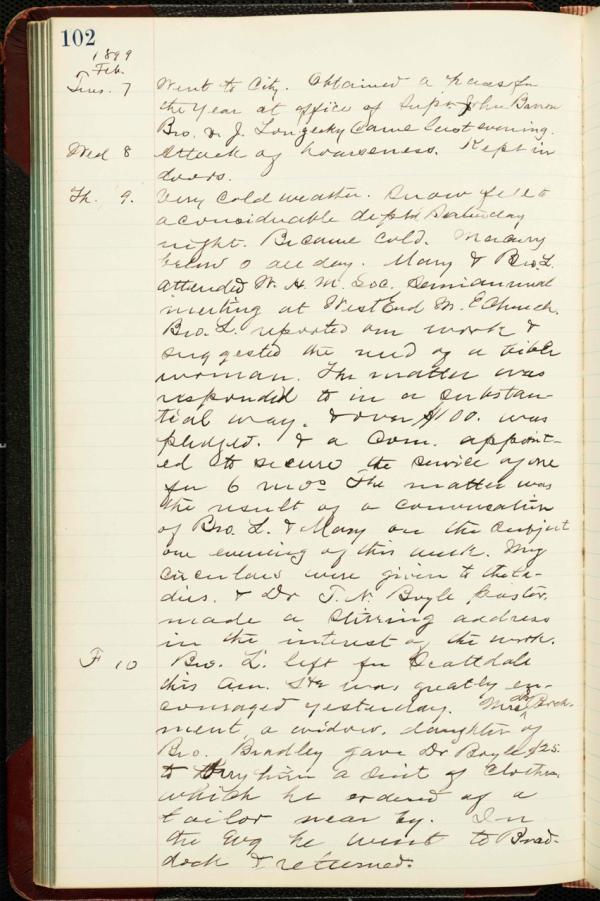 102
1899
Feb.
Tues. 7 Went to City. Obtained a pass for
the Year at office of Supt. John Barron
Bro. & J. came last evening.
Wed 8 Attack of hoarseness. Kept in
doors.
Th. 9. Very cold weather. Snow fell to
a considerable depth Saturday
night. Became cold. Mercury
below 0 all day. Mary & Bro. L.
attended W. H. M. Soc. Semiannual
meeting at West End M. E Church.
Bro. L. reported our work &
suggested the need of a bible
woman. The matter was
responded to in a substan-
tial way. & over $100. was
pledged. & a Com. appoint-
ed to secure the service of one
for 6 mos The matter was
the result of a conversation
of Bro. L. & Mary on the subject
one evening of this week. My
circulars were given to the la-
dies. & Dr T. N. Boyle pastor,
made a stirring address
in the interest of the work.
F 10 Bro. L. left for Scottdale
this am. He was greatly en-
couraged yesterday. Mrs
ment, a widow, daughter of
Bro. Bradley gave Dr Boyle $25
to buy him a suit of clothes,
which he ordered of a
tailor near by. In
the evg he went to Brad-
dock & returned.